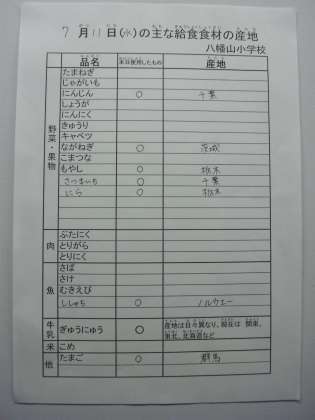 7月11日(水)の主な給食食材の産地
八幡山小学校
品名 本日使用したもの 産地
野菜・果物
たまねぎ
じゃがいも
にんじん ○ 千葉
しょうが
にんにく
きゅうり
キャベツ
ながねぎ ○ 茨城
こまつな
もやし ○ 栃木
さつまいも ○ 千葉
にら ○ 栃木
肉
ぶたにく
とりがら
とりにく
魚
さば
さけ
むきえび
ししゃも ○ ノルウェー
牛乳 ぎゅうにゅう ○ 産地は日々異なり、現在は 関東、
東北、北海道など
米 こめ
他 たまご ○ 群馬